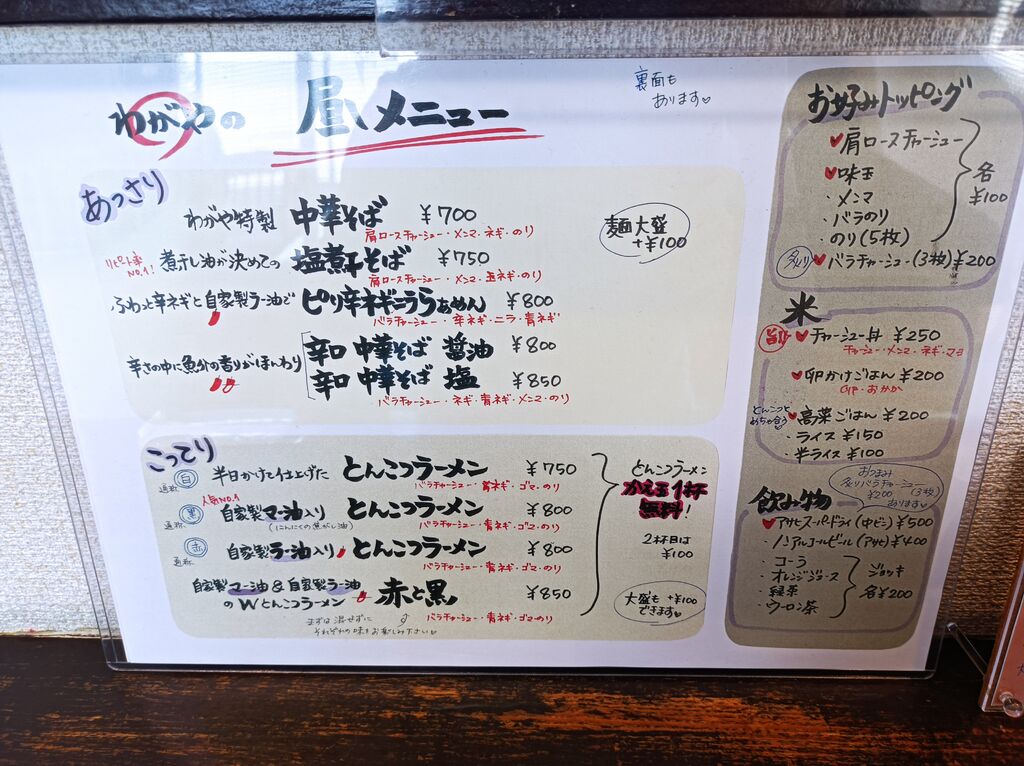 わがやの 昼メニュー
裏面も
あります♡
あっさり
わがや特製 中華そば ¥700
肩ロースチャーシュー・メンマ・ネギ・のり
麺大盛
+¥100
リピート率
No.1!
煮干し油が決めての 塩煮干そば ¥750
肩ロースチャーシュー・メンマ・玉ネギ・のり
ふわっと辛ネギと自家製ラー油で ピリ辛ネギニララぁめん ¥800
バラチャーシュー・辛ネギ・ニラ・青ネギ
辛さの中に魚介の香りがほんわり
辛口 中華そば 醤油 ¥800
辛口 中華そば 塩 ¥850
バラチャーシュー・ネギ・青ネギ・メンマ・のり
こってり
通称 白 半日かけて仕上げた とんこつラーメン ¥750
バラチャーシュー・青ネギ・ゴマ・のり
人気No.1
通称 黒 自家製マー油入り とんこつラーメン ¥800
(にんにくの焦がし油)
バラチャーシュー・青ネギ・ゴマ・のり
通称 赤 自家製ラー油入り とんこつラーメン ¥800
バラチャーシュー・青ネギ・ゴマ・のり
自家製マー油&自家製ラー油
のWとんこつラーメン 赤と黒 ¥850
バラチャーシュー・青ネギ・ゴマ・のり
まずは混ぜずに
それぞれの味をお楽しみ下さい♡
とんこつラーメン
かえ玉1杯
無料!
2杯目は
¥100
大盛も +¥100
できます♡
お好み トッピング
♥肩ロースチャーシュー
♥味玉
・メンマ
・バラのり
・のり(5枚)
各
¥100
炙り ♥バラチャーシュー(3枚)¥200
米
旨 ♥チャーシュー丼 ¥250
チャーシュー・メンマ・ネギ・マヨ
♥卵かけごはん ¥200
卵・おかか
とんこつと
めちゃ合う
♥高菜ごはん ¥200
・ライス ¥150
・半ライス ¥100
おつまみ
炙りバラチャーシュー
¥200 (3枚)
あります♡
飲み物
♥アサヒスーパードライ(中ビン)¥500
・ノンアルコールビール(アサヒ)¥400
・コーラ
・オレンジジュース
・緑茶
・ウーロン茶
ジョッキ
各¥200